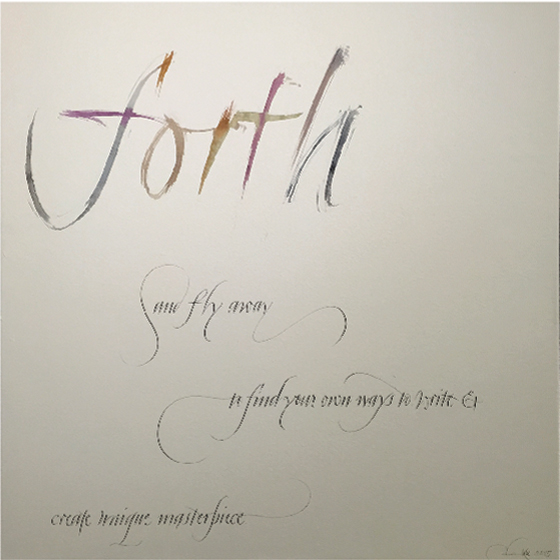 forth
and fly away
to find your own ways to write &
create unique masterpiece